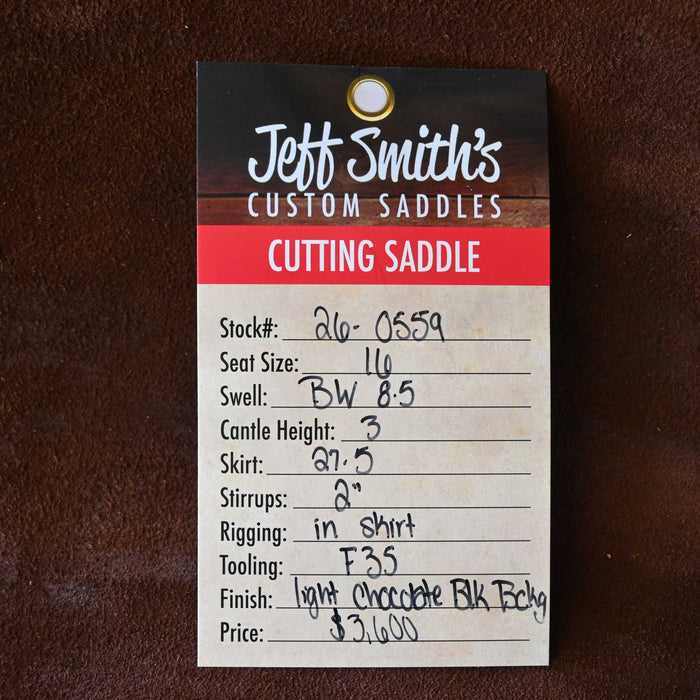 Jeff Smith's
CUSTOM SADDLES
CUTTING SADDLE
Stock#: 26-0559
Seat Size: 16
Swell: BW 8.5
Cantle Height: 3
Skirt: 27.5
Stirrups: 2"
Rigging: in skirt
Tooling: F35
Finish: light chocolate Blk Bckg
Price: $3,600